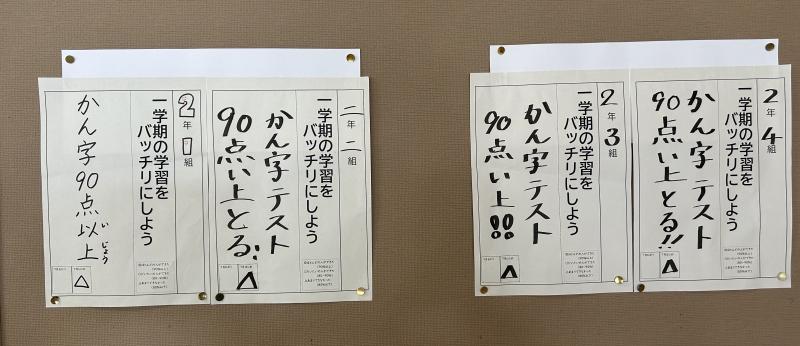 2年1組
一学期の学習を
バッチリにしよう
かん字90点以上
いじょう
△
二年二組
一学期の学習を
バッチリにしよう
かん字テスト
90点い上とる!
△
2年3組
一学期の学習を
バッチリにしよう
かん字テスト
90点い上!!
△
2年4組
一学期の学習を
バッチリにしよう
かん字テスト
90点い上とる!!
△